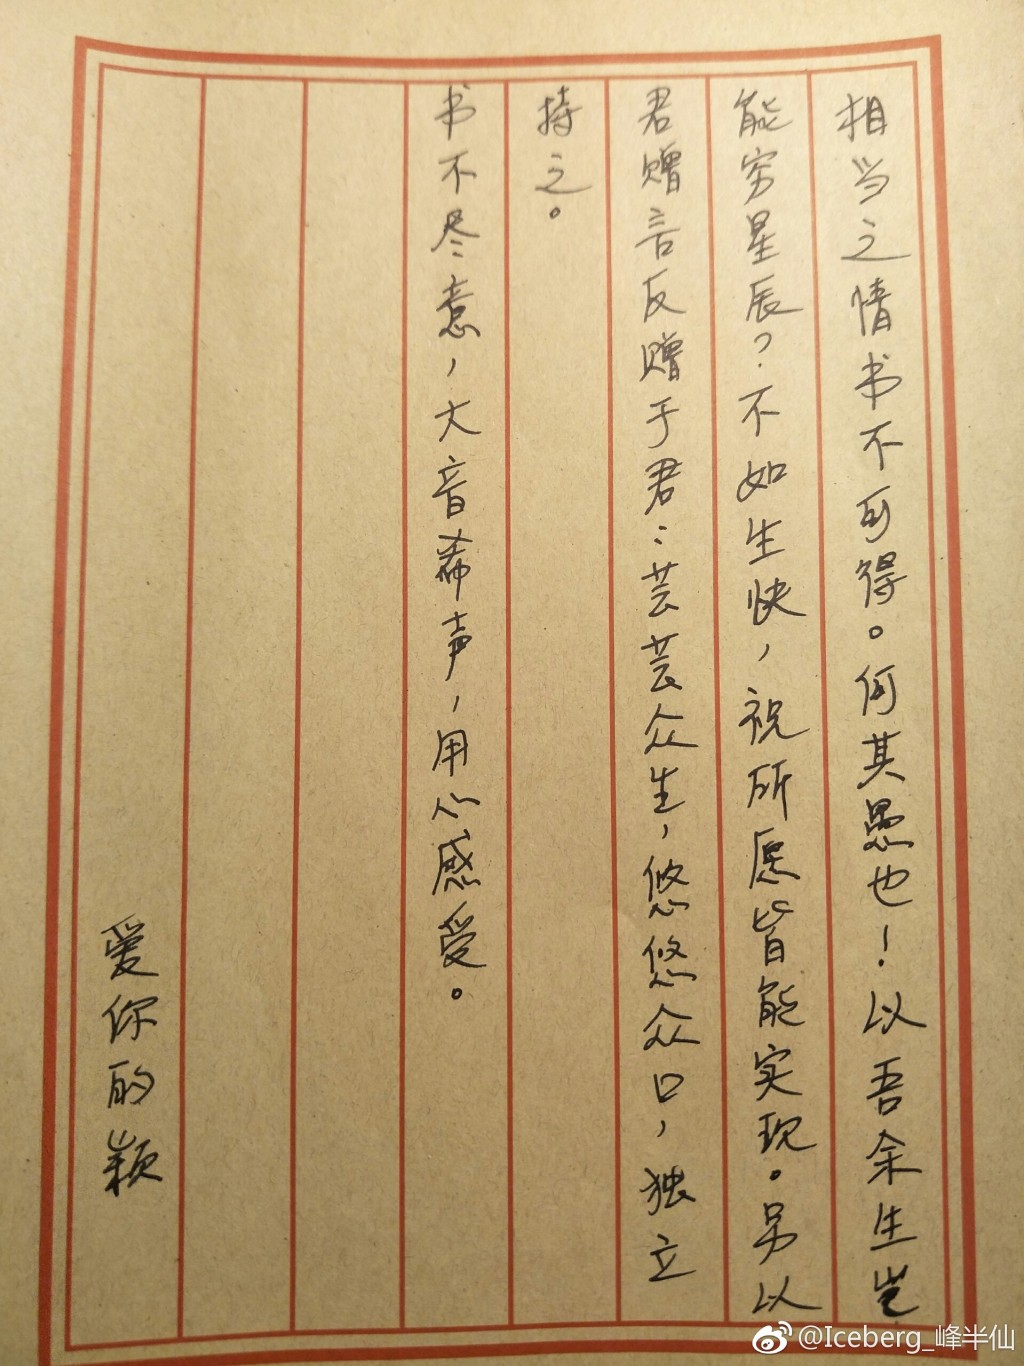 相当之情书不可得。何其愚也！以吾余生岂
能穷星辰？不如生快，祝所愿皆能实现。另以
君赠言反赠于君：芸芸众生，悠悠众口，独立
持之。
书不尽意，大音希声，用心感受。
爱你的颖
@Iceberg_峰半仙